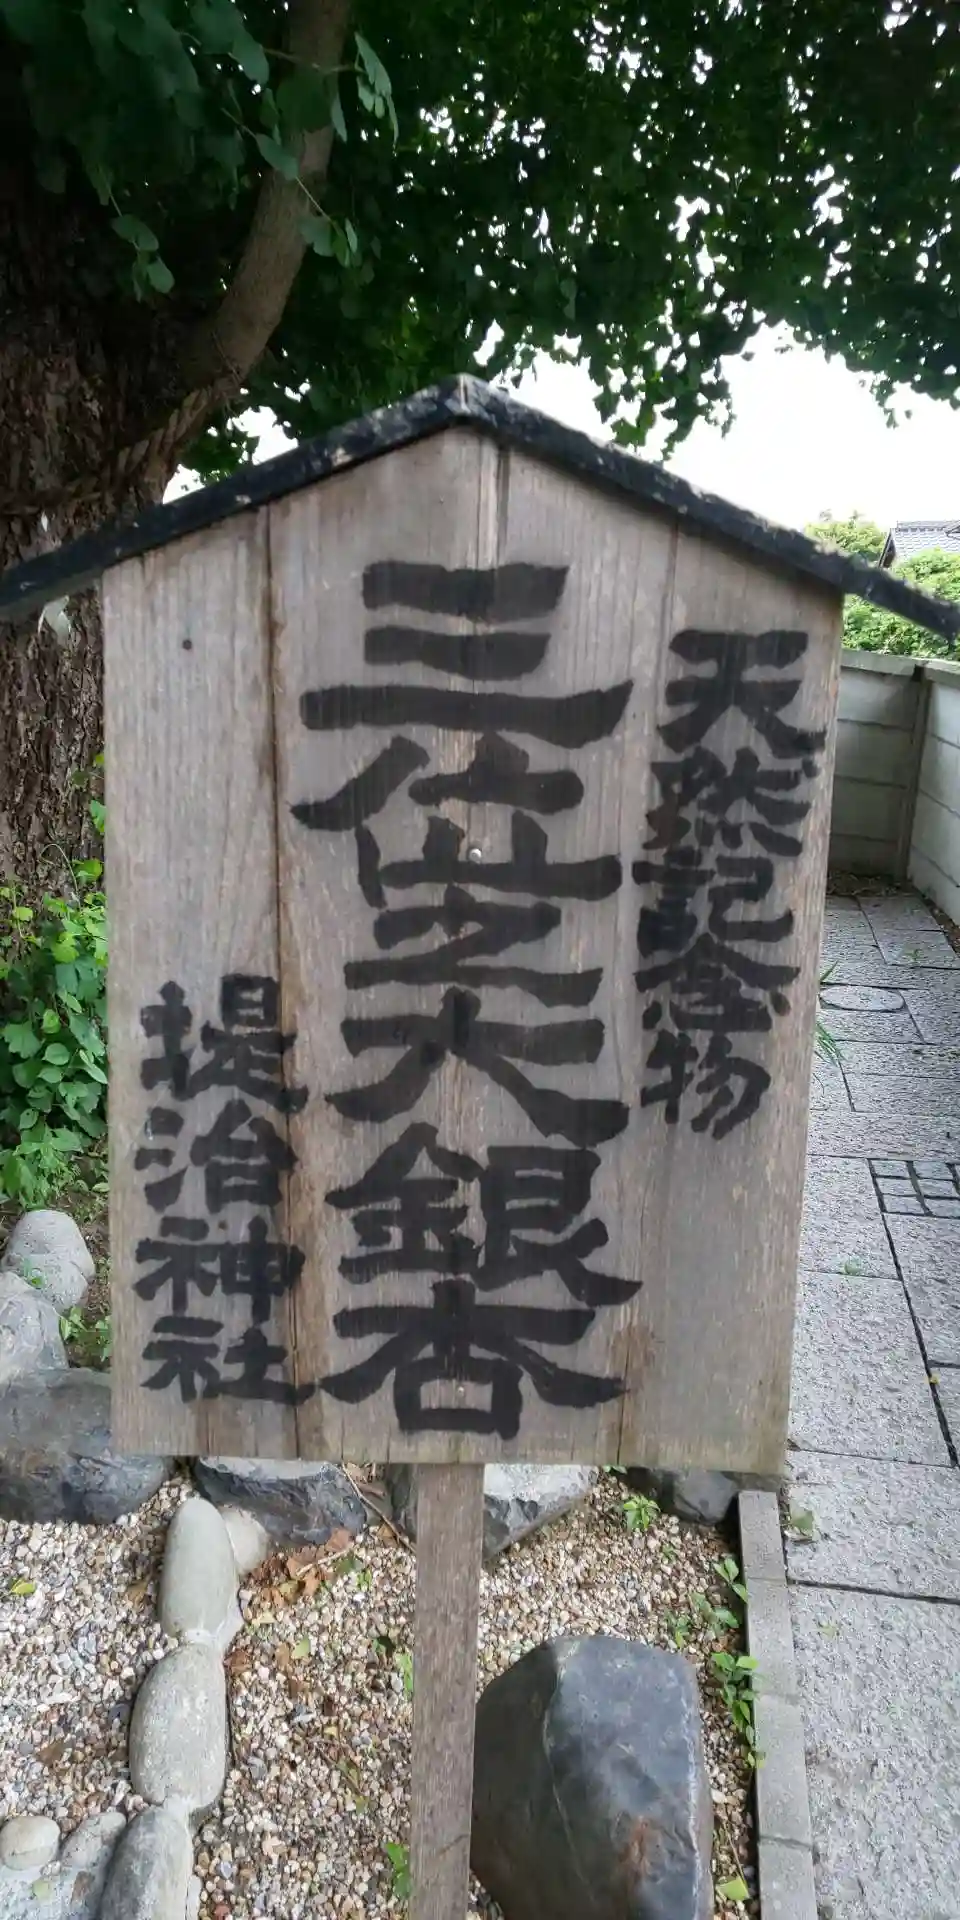 天然記念物
三位之大銀杏
堤治神社